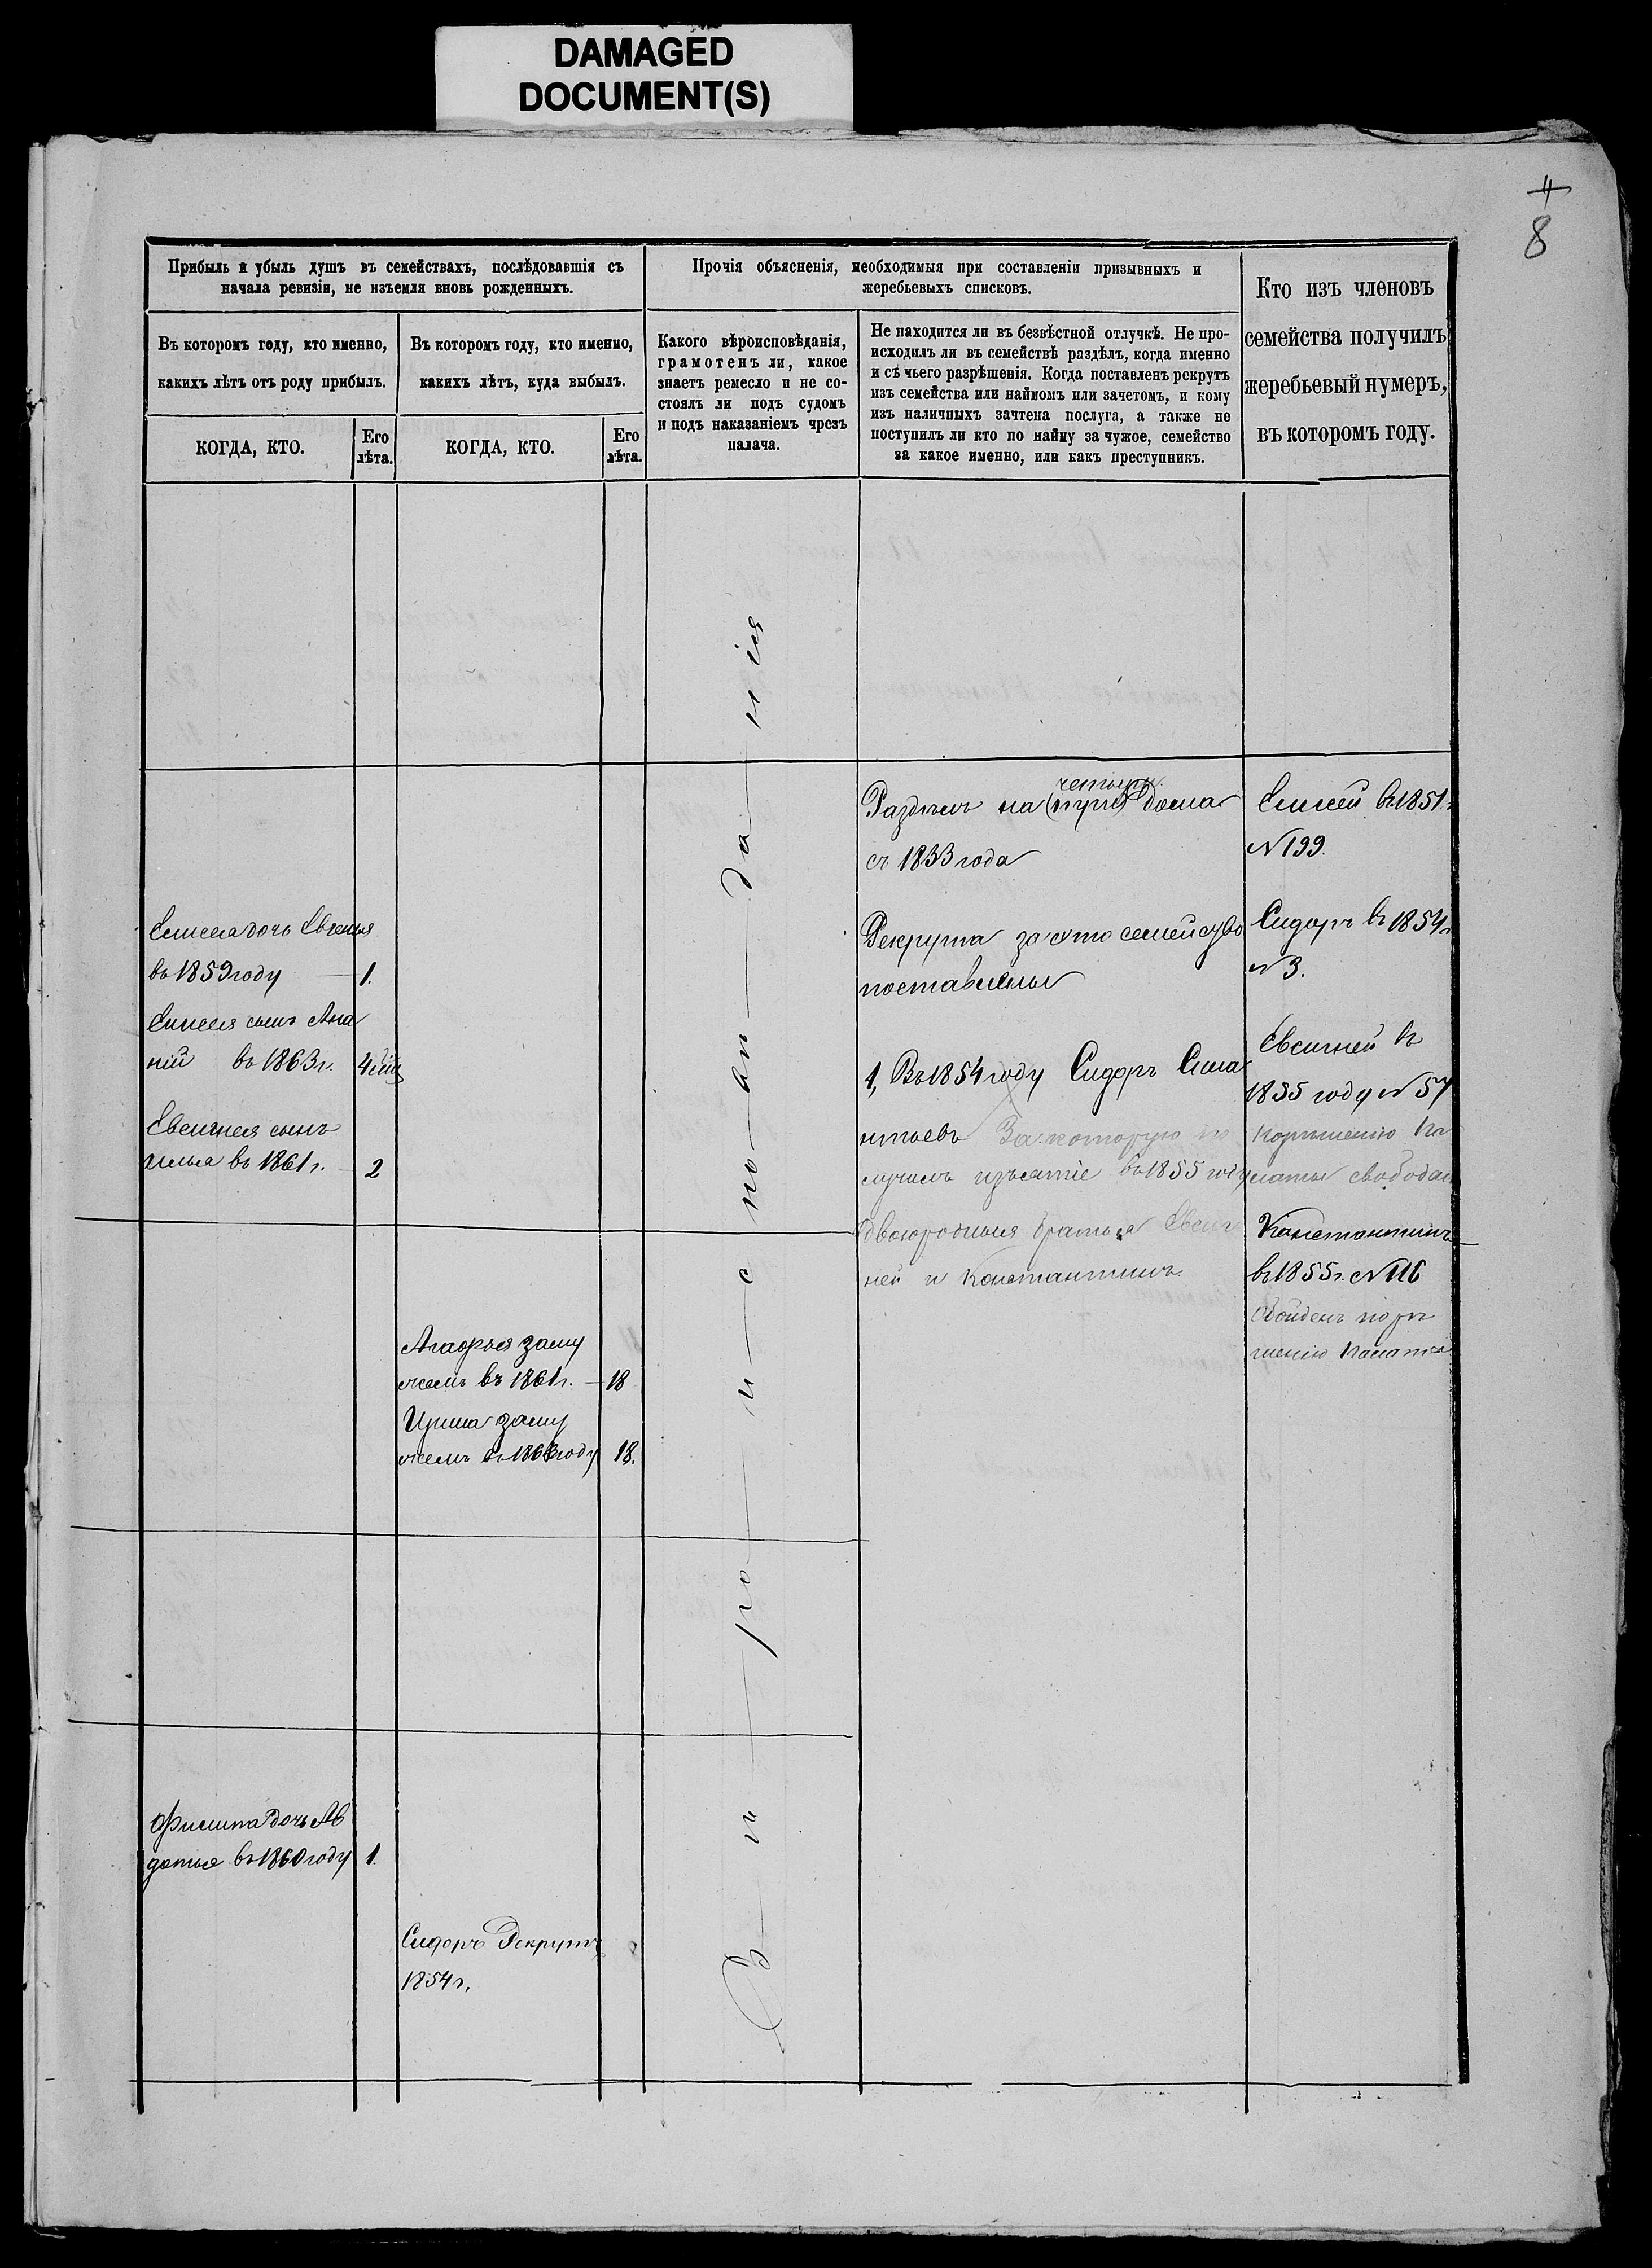 DAMAGED
DOCUMENT(S)
8
Прибыль и убыль душъ въ семействахъ, послѣдовавшія съ
начала ревизіи, не изъемля вновь рожденныхъ.
Въ которомъ году, кто именно,
какихъ лѣтъ отъ роду прибылъ.
КОГДА, КТО.
Его
лѣта.
Въ которомъ году, кто именно,
какихъ лѣтъ, куда выбылъ.
КОГДА, КТО.
Его
лѣта.
Прочія объясненія, необходимыя при составленіи призывныхъ и
жеребьевыхъ списковъ.
Какого вѣроисповѣданія,
грамотенъ ли, какое
знаетъ ремесло и не со-
стоялъ ли подъ судомъ
и подъ наказаніемъ чрезъ
палача.
Не находится ли въ безвѣстной отлучкѣ. Не про-
исходилъ ли въ семействѣ раздѣлъ, когда именно
и съ чьего разрѣшенія. Когда поставленъ рекрутъ
изъ семейства или наймомъ или зачетомъ, и кому
изъ наличныхъ зачтена послуга, а также не
поступилъ ли кто по найму за чужое, семейство
за какое именно, или какъ преступникъ.
Кто изъ членовъ
семейства получилъ
жеребьевый нумеръ,
въ которомъ году.
дочь Евгенья
въ 1859 году 1.
сынъ Ана
ній въ 1863 г. 4
Евсигнея сынъ
въ 1861 г. 2
Филипа дочь Ав
дотья въ 1860 году 1.
Агафья заму
жемъ въ 1861 г. 18
Ирина заму
жемъ въ 1863 году 18.
Сидоръ Рекрутъ
1854 г.
В—и—ро—и—с—по—вѣ—да—нія
четыре
Раздѣлъ на дома
съ 1833 года
Рекрута за это семейство
поставлены
1, Въ 1854 году Сидоръ
нтьевъ За которую по
лучилъ изъятіе въ 1855 году
двоюродныя братья Евсиг
ней и Константинъ.
Елисей въ 1851 г
№ 199.
Сидоръ въ 1854 г
№ 3.
Евсигней въ
1855 году № 57
по рѣшенію Па
латы свободенъ
Константинъ
въ 1855 г. № 116
по рѣ
шенію Палаты